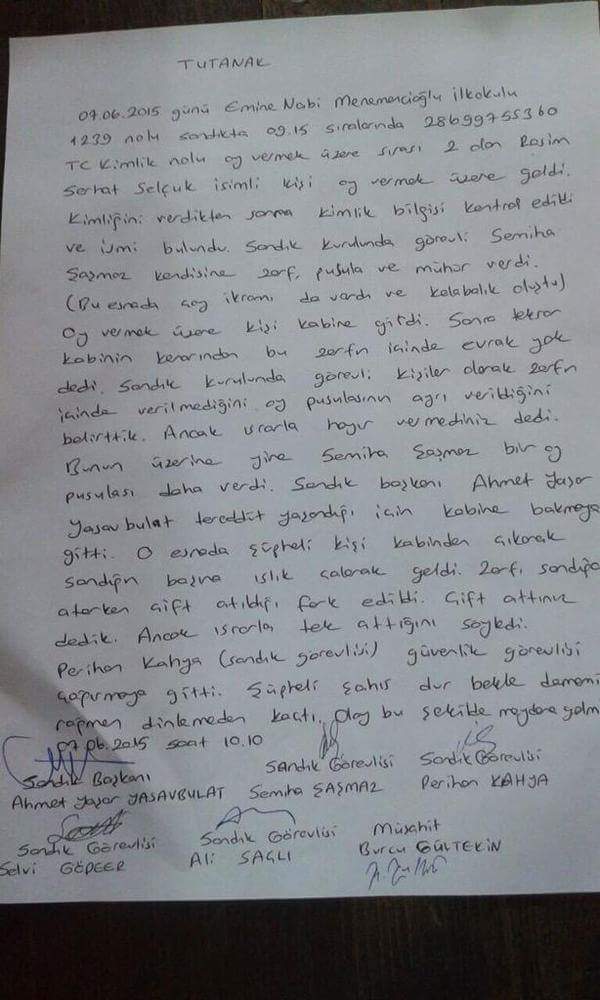 TUTANAK
07.06.2015 günü Emine Nabi Menemencioğlu İlkokulu
1239 nolu sandıkta 09.15 sıralarında 28699755360
TC Kimlik nolu oy vermek üzere sırası 2 olan Rasim
Serhat Selçuk isimli kişi oy vermek üzere geldi.
Kimliğini verdikten sonra kimlik bilgisi kontrol edildi
ve ismi bulundu. Sandık kurulunda görevli Semiha
Şaşmaz kendisine zarf, pusula ve mühür verdi.
(Bu esnada çay ikramı da vardı ve kalabalık oluştu)
Oy vermek üzere kişi kabine gitdi. Sonra tekrar
kabinin kenarından bu zarfın içinde evrak yok
dedi. Sandık kurulunda görevli kişiler olarak zarfın
içinde verilmediğini oy pusulasının ayrı verildiğini
belirttik. Ancak ısrarla hayır vermediniz dedi.
Bunun üzerine yine Semiha Şaşmaz bir oy
pusulası daha verdi. Sandık başkanı Ahmet Yaşar
Yasavbulat tereddüt yaşandığı için kabine bakmaya
gitti. O esnada şüpheli kişi kabinden çıkarak
sandığın başına ıslık çalarak geldi. Zarfı sandığa
atarken çift atıldığı fark edildi. Çift attınız
dedik. Ancak ısrarla tek attığını söyledi.
Perihan Kahya (sandık görevlisi) güvenlik görevlisi
çağırmaya gitti. Şüpheli şahıs dur bekle dememe
rağmen dinlemeden kaçtı. Olay bu şekilde meydana gelmi
07.06.2015 saat 10.10
Sandık Başkanı SANdık Görevlisi Sandık Görevlisi
Ahmet Yaşar YASAVBULAT Semiha ŞAŞMAZ Perihan KAHYA
Sandık Görevlisi Sandık Görevlisi Müşahit
Selvi Ali SAĞLI Burcu GÜLTEKİN